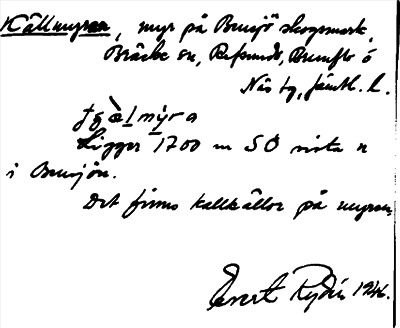 Källmyran, myr på Bensjö skogsmark,
Bräcke sn, Refsunds, Brunflo o
Näs tg, Jämtl. l.
Ligger 1700 m SO sista n
i Bensjön.
Det finns kallkällor på myren.
Evert Rydén 194